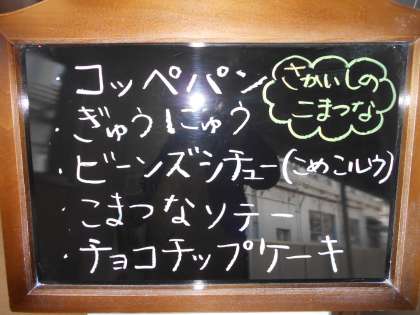 ・コッペパン
さかいしの
こまつな
・ぎゅうにゅう
・ビーンズシチュー(こめこルウ)
・こまつなソテー
・チョコチップケーキ